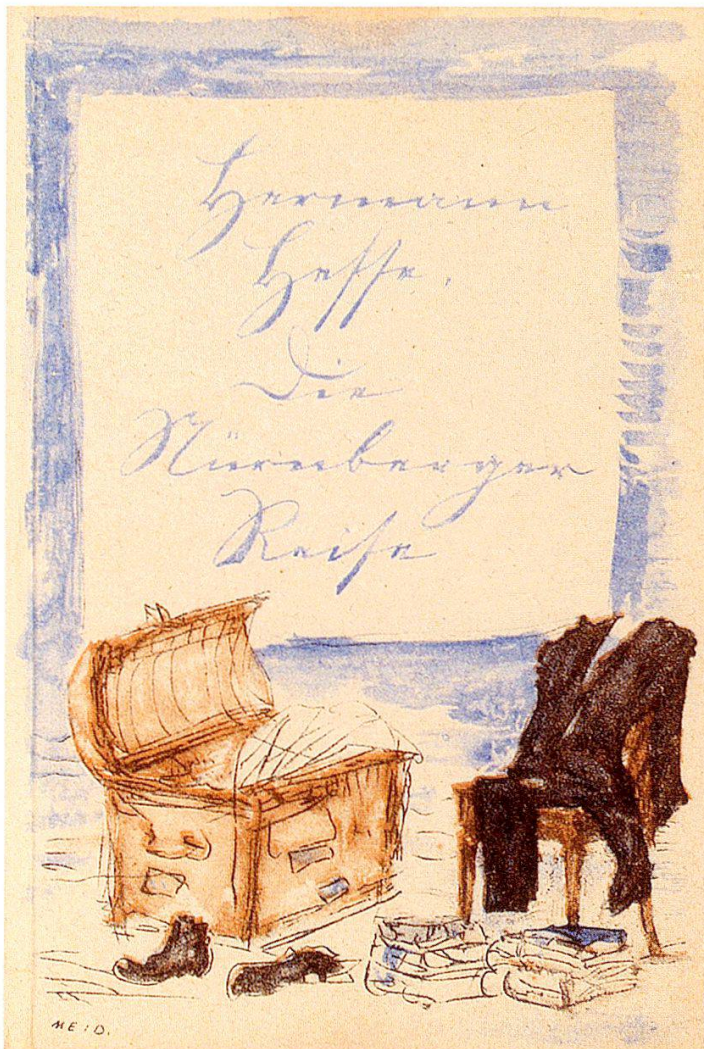 Hermann
Hesse.
Die
Nürnberger
Reise
MEID.